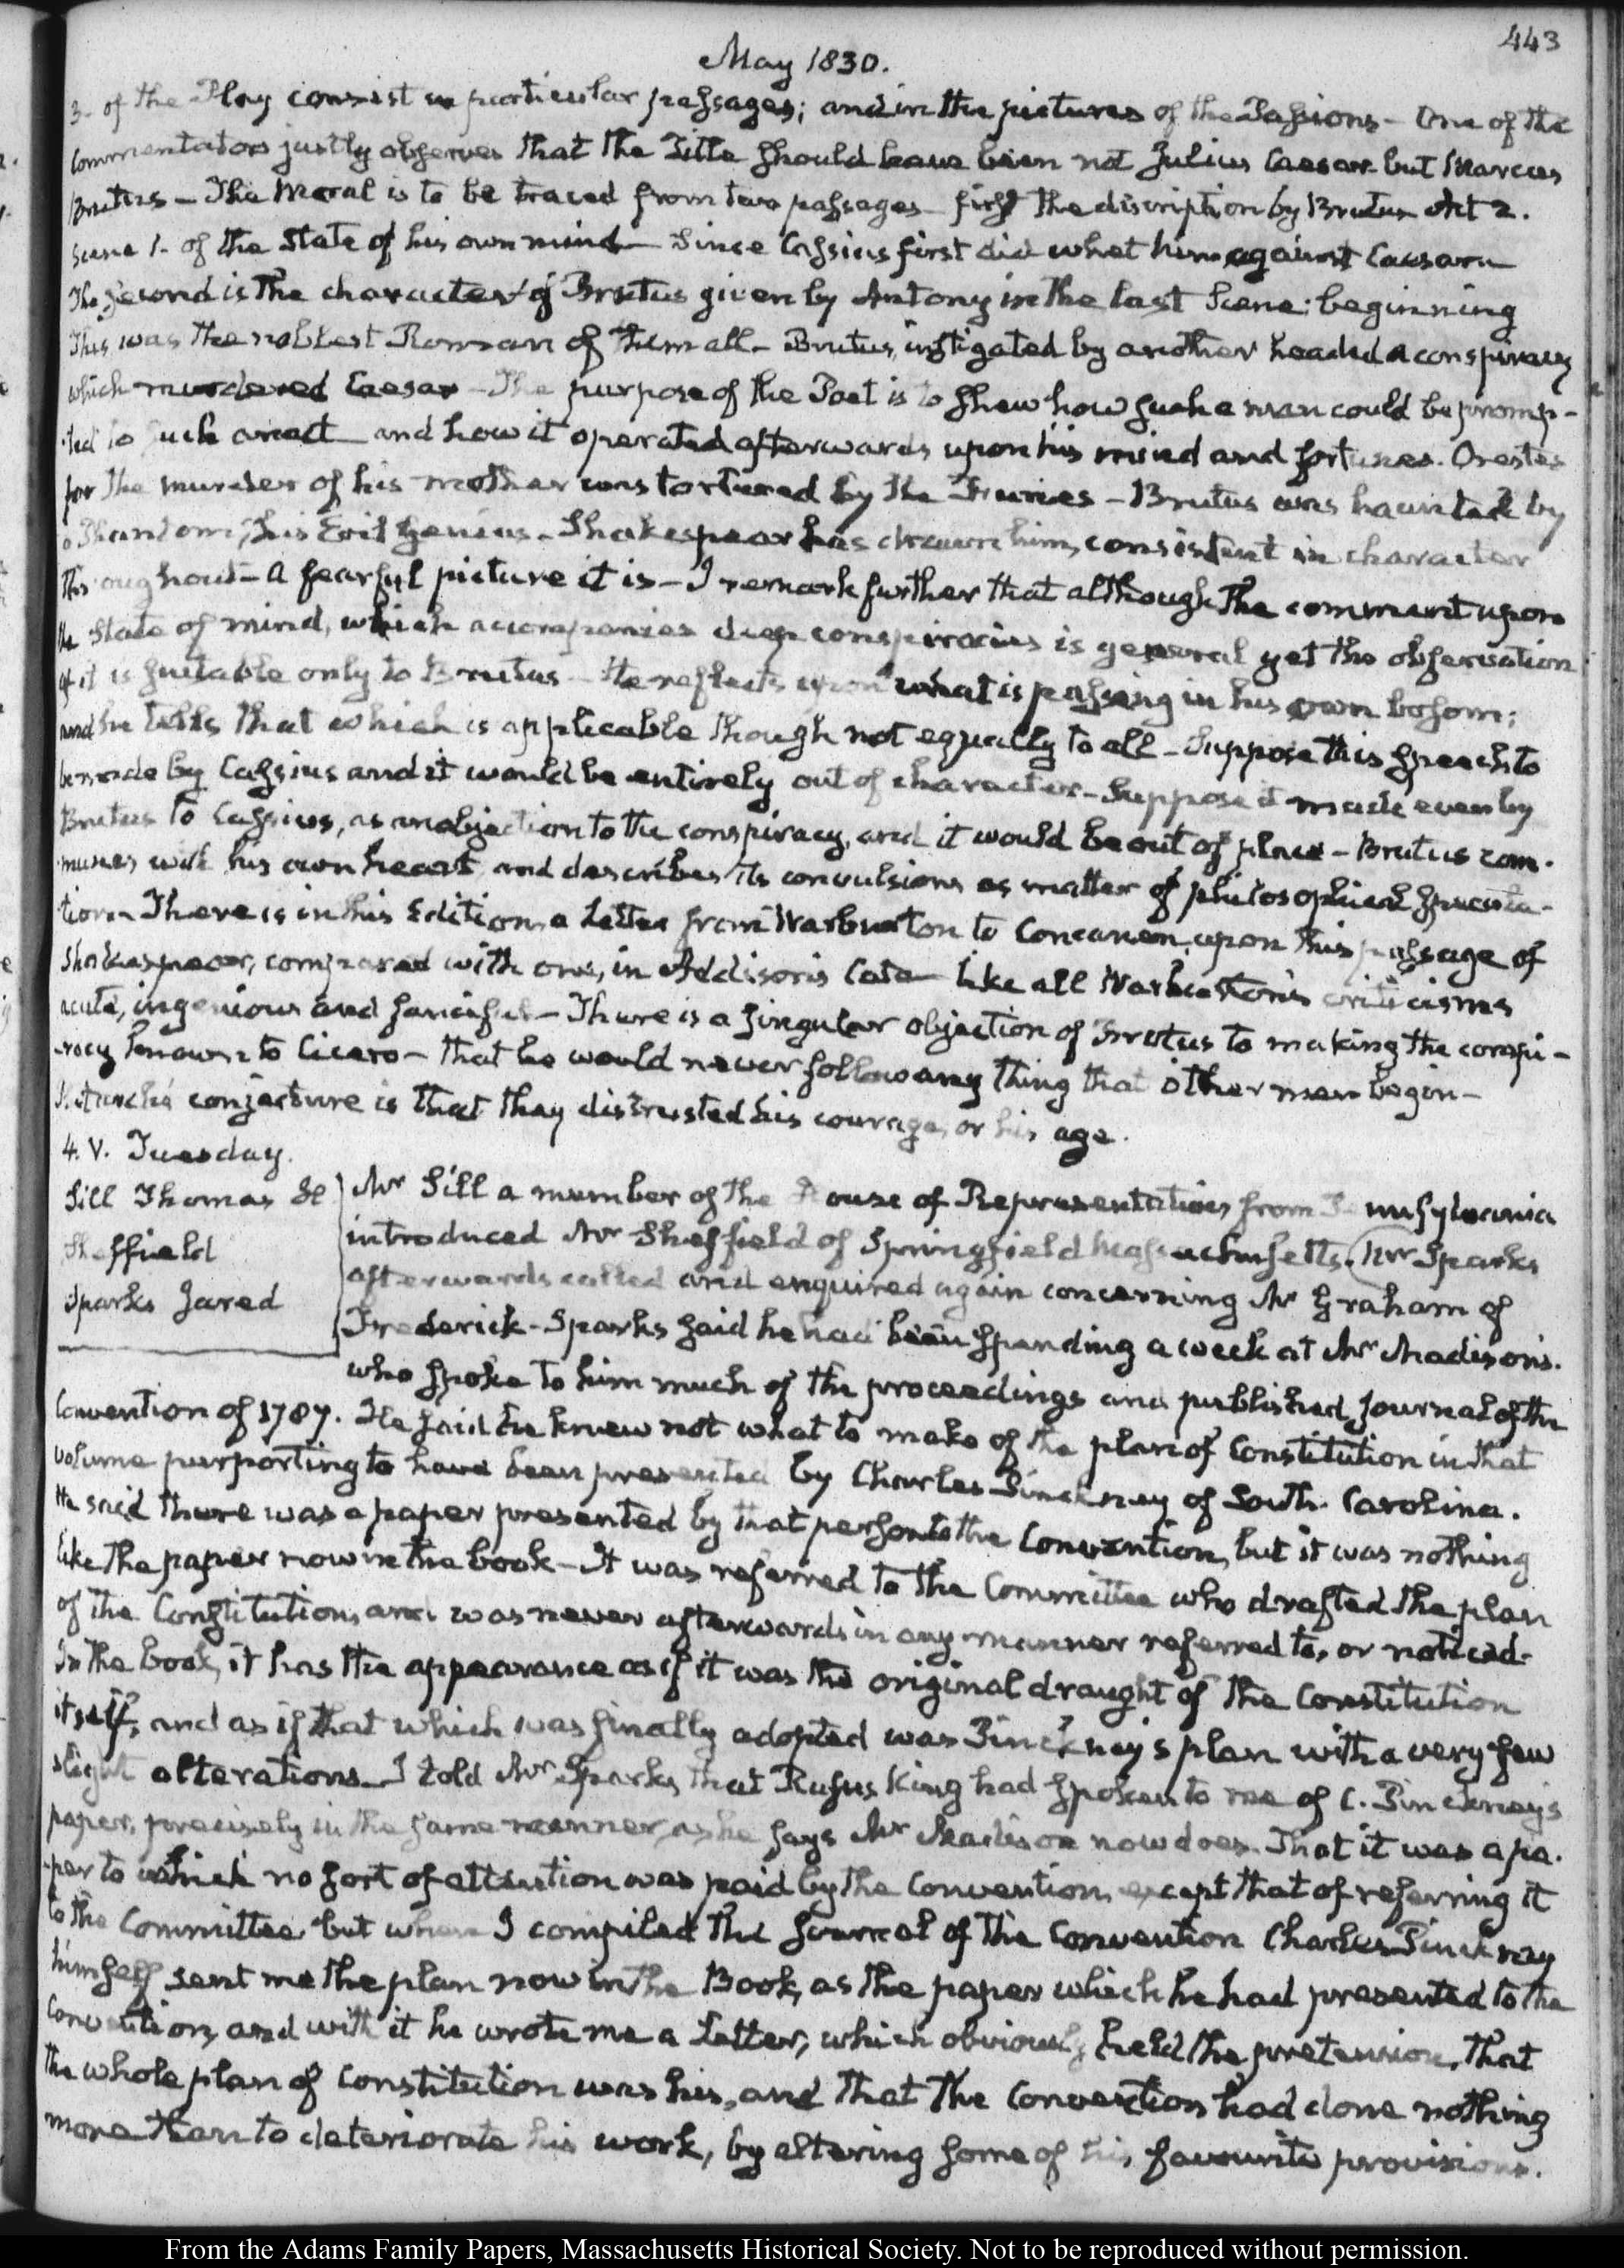 443
May 1830.
3. of the Play consist in particular passages; and in the pictures of the Passions — One of the
Commentators justly observes that the Title should have been not Julius Caesar but Marcus
Brutus — The Moral is to be traced from two passages — first the discription by Brutus Act 2.
Scene 1. of the State of his own mind — Since Cassius first did whet him against Caesar —
The second is the character of Brutus given by Antony in the last Scene: beginning
This was the noblest Roman of them all — Brutus, instigated by another headed a conspiracy
which murdered Caesar — The purpose of the Poet is to shew how such a man could be promp-
-ted to such an act and how it operated afterwards upon his mind and fortunes. Orestes
for the murder of his mother was tortured by the Furies — Brutus was haunted by
a Phantom, his Evil Genius — Shakespear has drawn him, consistent in character
throughout — A fearful picture it is — I remark further that although the comment upon
the State of mind, which accompanies deep conspiracies is general yet the observation
of it is suitable only to Brutus — He reflects upon what is passing in his own bosom;
and he tells that which is applicable though not equally to all — Suppose this speech to
be made by Cassius and it would be entirely out of character — Suppose it made even by
Brutus to Cassius, as an objection to the conspiracy, and it would be out of place — Brutus com-
-munes with his own heart and describes its convulsions as matter of philosophical specula-
-tion — There is in this Edition a Letter from Warburton to Concanen upon this passage of
Shakespear, compared with one, in Addison's Cato — like all Warburton's criticisms
acute, ingenious and fanciful — There is a singular objection of Brutus to making the conspi-
-racy known to Cicero — that he would never follow any thing that other men begin —
Plutarch's conjecture is that they distrusted his courage, or his age.
4. V. Tuesday.
Sill Thomas H
Sheffield
Sparks Jared
Mr Sill a member of the House of Representatives from Pennsylvania
introduced Mr Sheffield of Springfield Massachusetts. Mr Sparks
afterwards called and enquired again concerning Mr Graham of
Frederick — Sparks said he had been spending a week at Mr Madison's.
who spoke to him much of the proceedings and published Journal of the
Convention of 1787. He said he knew not what to make of the plan of Constitution in that
volume purporting to have been presented by Charles Pinckney of South Carolina.
He said there was a paper presented by that person to the Convention, but it was nothing
like the paper now in the book — It was referred to the Committee who drafted the plan
of the Constitution, and was never afterwards in any manner referred to, or noticed.
In the book, it has the appearance as if it was the original draught of the Constitution
itself, and as if that which was finally adopted was Pinckney's plan with a very few
slight alterations — I told Mr Sparks that Rufus King had spoken to me of C. Pinckney's
paper, precisely in the same manner, as he says Mr Madison now does. That it was a pa-
-per to which no sort of attention was paid by the Convention, except that of referring it
to the Committee but when I compiled the Journal of the Convention Charles Pinckney
himself sent me the plan now in the Book, as the paper which he had presented to the
Convention, and with it he wrote me a Letter, which obviously held the pretension, that
the whole plan of Constitution was his, and that the Convention had done nothing
more than to deteriorate his work, by altering some of his favourite provisions.
From the Adams Family Papers, Massachusetts Historical Society. Not to be reproduced without permission.